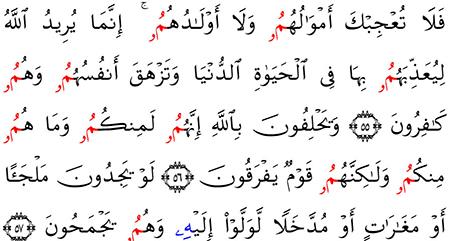 فَلَا تُعْجِبْكَ أَمْوَٰلُهُمُۥ وَلَا أَوْلَـٰدُهُمُۥٓ ۚ إِنَّمَا يُرِيدُ ٱللَّهُ
لِيُعَذِّبَهُمُۥ بِهَا فِى ٱلْحَيَوٰةِ ٱلدُّنْيَا وَتَزْهَقَ أَنفُسُهُمُۥ وَهُمُۥ
كَـٰفِرُونَ ٥٥ وَيَحْلِفُونَ بِٱللَّهِ إِنَّهُمُۥ لَمِنكُمُۥ وَمَا هُمُۥ
مِنكُمُۥ وَلَـٰكِنَّهُمُۥ قَوْمٌ يَفْرَقُونَ ٥٦ لَوْ يَجِدُونَ مَلْجَـًٔا
أَوْ مَغَـٰرَٰتٍ أَوْ مُدَّخَلًا لَّوَلَّوْا۟ إِلَيْهِۦ وَهُمُۥ يَجْمَحُونَ ٥٧